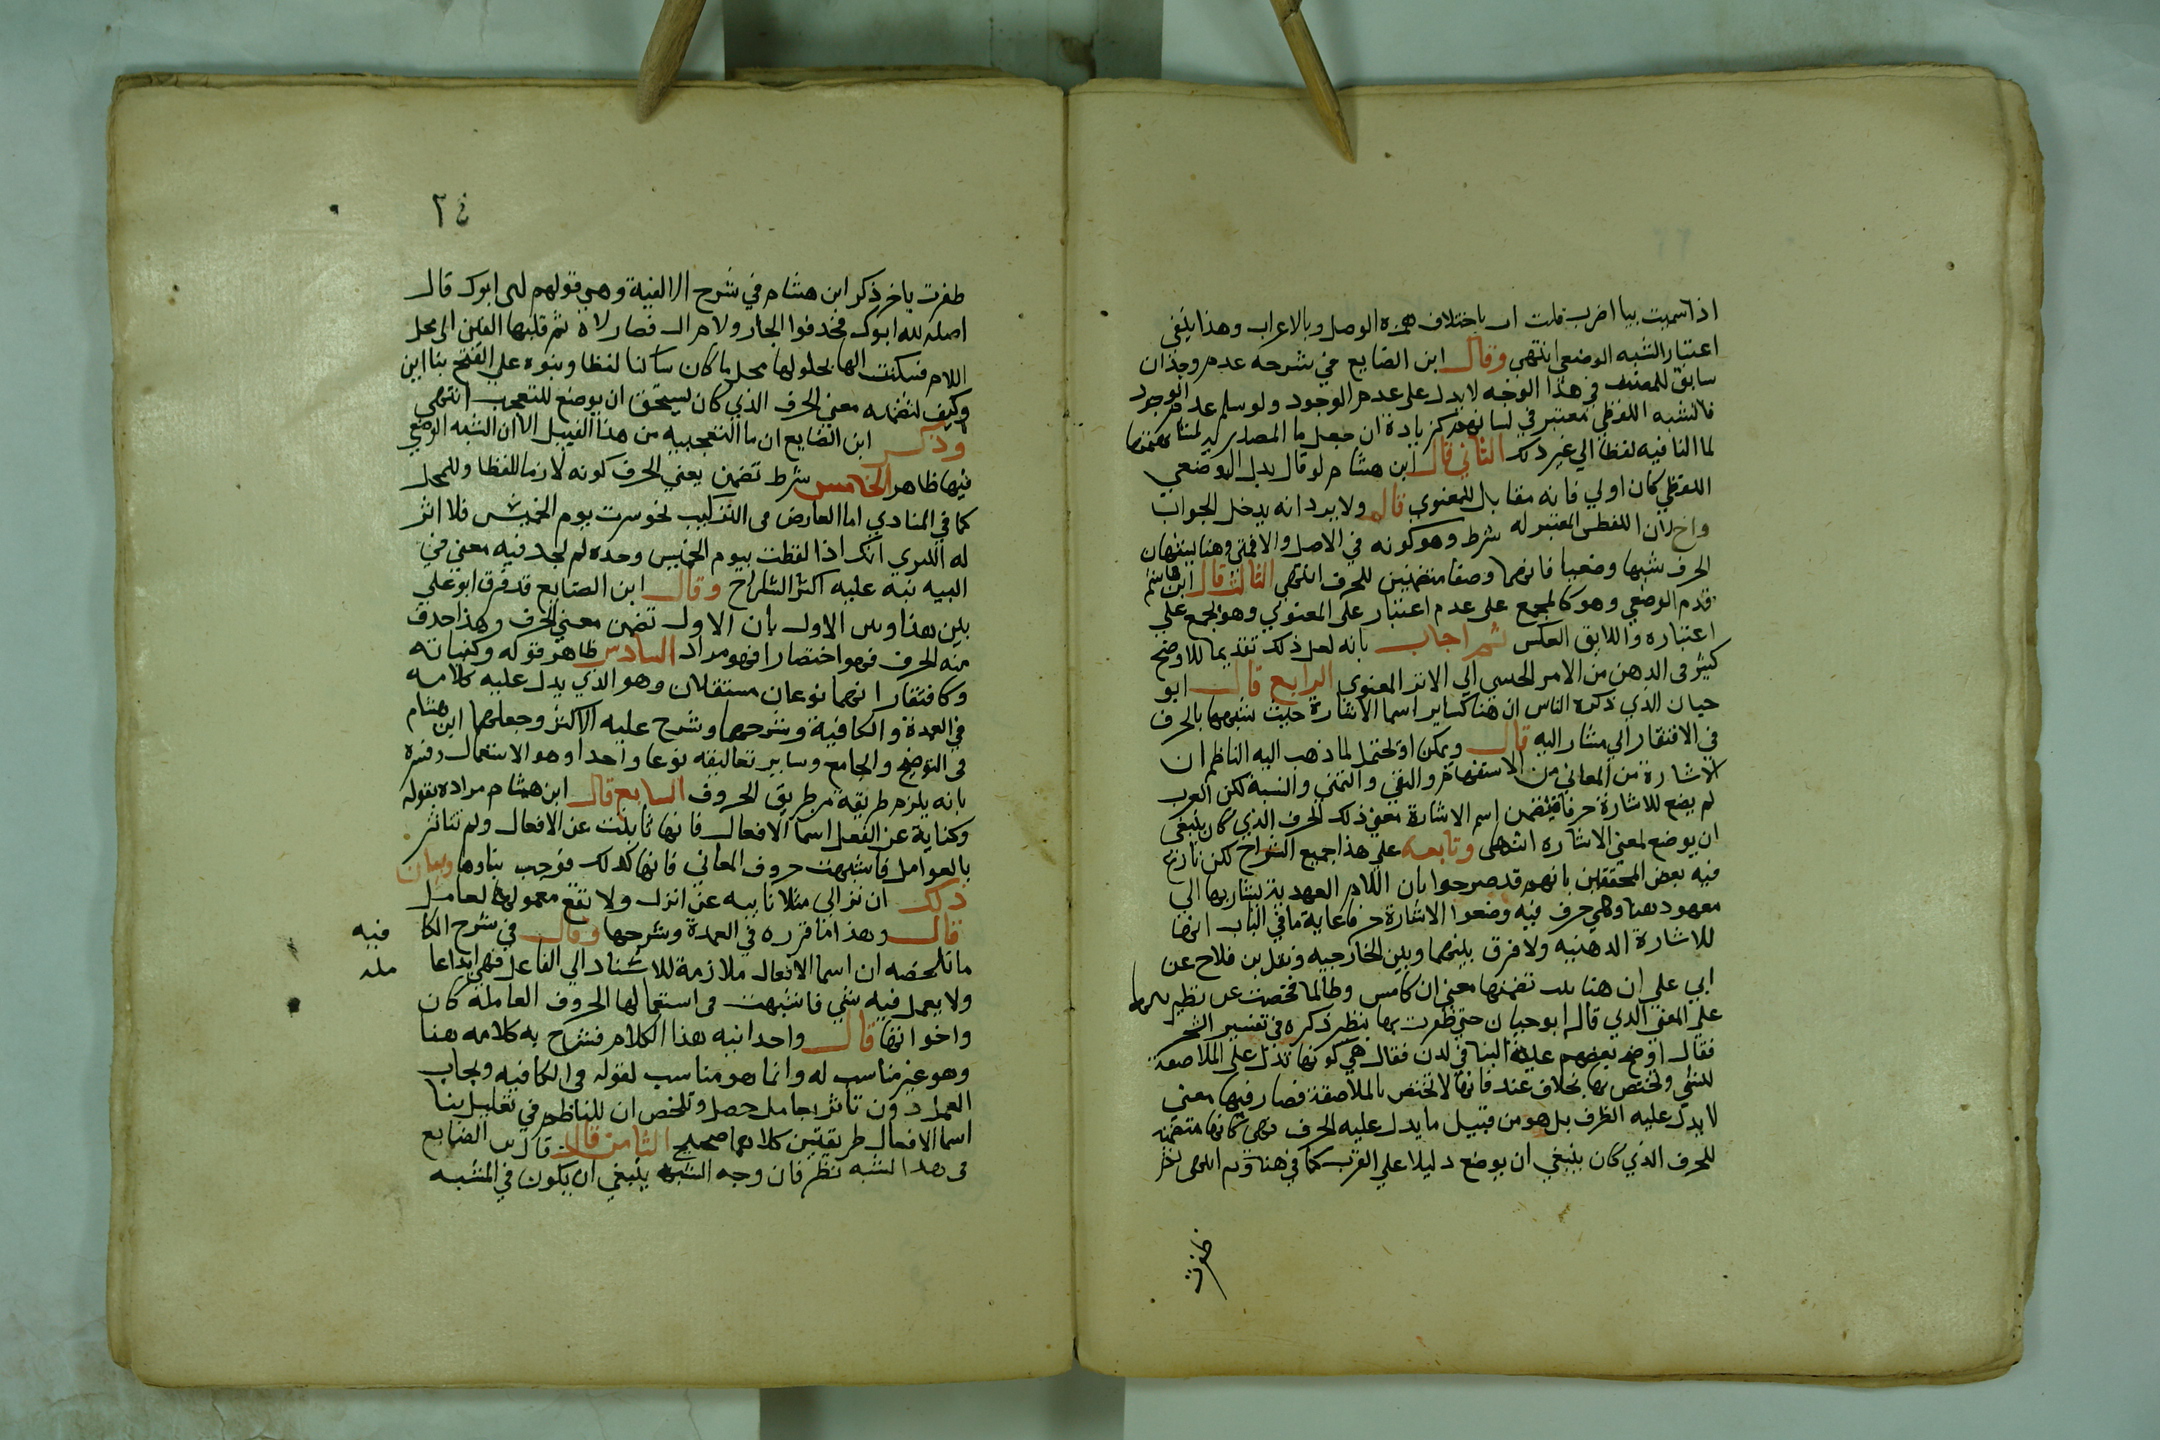 اذا سميت بيا اضرب قلت اب باختلاف همزه الوصل وبالاعراب وهذا يلغي
اعتبار الشبه الوضعي انتهي وقال ابن الضايع في شرحه عدم وجدان
سابق للمصنف في هذا الوجه لا يدل على عدم الوجود ولو سلم عدم الوجود
فالشبه اللفظي معتبر في لسانهم كزيادة ان جعل ما المصدريه لمشابهتها
لما النافيه لفظا الي غير ذلك الثاني قال ابن هشام لو قال بدل الوضعي
اللفظي كان اولي فانه مقابل للمعنوي قال ولا يرد انه يدخل الجواب
ان اللفظى المعتبر له شرط وهو كونه في الاصل
الحرف شبها وضعيا فانهما وصفا متضمنين للحرف انتهي الثالث قال ابن هشام
قدم الوضعي وهو كالمجمع على عدم اعتبار على المعنوي وهو المجمع علي
اعتباره واللايق العكس ثم اجاب بانه لعل ذلك تقديما للاوضح
في الذهن من الامر الحسي الي الامر المعنوي الرابع قال ابو
حيان الذي ذكره الناس ان هنا كساير اسما الاشارة حيث شبهها بالحرف
في الافتقار الي مشار اليه قال ويمكن او يحتمل لما ذهب اليه الناظم ان
الاشارة من المعاني من الاستفهام والنفي والتمني والنسبة لكن العرب
لم يضع للاشارة حرفا فتضمن اسم الاشارة معني ذلك الحرف الذي كان ينبغي
ان يوضع لمعني الاشاره انتهى وتابعه علي هذا جميع الشراح لكن نازع
فيه بعض المحققين بانهم قد صرحوا بان اللام العهدية يشار بها الي
معهود هنا وهي حرف فيه وضعوا الاشارة حرفا غاية ما في الباب انها
للاشارة الذهنيه ولا فرق بينهما وبين الخارجيه ونقل بن فلاح عن
ابي علي ان هنا بنيت تضمنها معني ان كامس وطالما تفحصت عن نظير
علي المعني الذي قال ابو حيان حتي ظفرت بها بنظير ذكره في تفسير البحر
فقال اوضح بعضهم علة البنا في لدن فقال هي كونها تدل على الملاصقة
للشي وتختص بها بخلاف عند فانها لا تختص بالملاصقة فصار فيها معني
لا يدل عليه الظرف بل هو من قبيل ما يدل عليه الحرف فهي كانها متضمنه
للحرف الذي كان ينبغي ان يوضع دليلا علي القرب كما في هنا وثم انتهى ثم
ظفرت
٢٤
ظفرت باخر ذكر ابن هشام في شرح الالفية وهي قولهم لهى ابوك قال
اصله لله ابوك فحذفوا الجار ولام ال فصار لاه ثم قلبها الفين الى محل
اللام فسكنت الها لحلولها محل ما كان ساكنا لفظا وبنوه علي الفتح بنا اين
وكيف لتضمنه معني الحرف الذي كان يستحق ان يوضع للتعجب انتهي
وذكر ابن الضايع ان ما التعجبيه من هذا القبيل الا ان الشبه الوضعي
فيها ظاهر الخامس شرط تضمن معني الحرف كونه لازما للفظا وللمحل
كما في المنادي اما العارض في التركيب نحو سرت يوم الخميس فلا اثر
له الاتري انك اذا لفظت بيوم الخميس وحده لم تجد فيه معني في
البيه نبه عليه اكثر الشراح وقال ابن الصايع قد فرق ابو علي
بين هذا وبين الاول بان الاول تضمن معني الحرف وهذا حذف
منه الحرف فهو اختصارا فهو مراد السادس ظاهر قوله وكنيابه
وكافتقار انهما نوعان مستقلان وهو الذي يدل عليه كلامه
في العمدة والكافية وشرحهما وشرح عليه الاكثر وجعلهما ابن هشام
في التوضيح والجامع وساير تعاليقه نوعا واحدا وهو الاستعمال وفسره
بانه يلزم طريقة من طريق الحروف السابع قال ابن هشام مراده بقوله
وكناية عن الفعل اسما الافعال فانها نابت عن الافعال ولم تتاثر
بالعوامل فاشبهت حروف المعاني فانها كذلك فوجب بناوها وبيان
ذلك ان نزالي مثلا نايبه عن انزل ولا تقع معموله لعامل
قال وهذا ما قرره في العمدة وشرحها وقال في شرح الكا فيه
ما تلخصه ان اسما الافعال ملازمة للاسناد الي الفاعل فهي ابدا عا مله
ولا يعمل فيه شي فاشبهت في استعمالها الحروف العاملة كان
واخواتها قال واحد انبه هذا الكلام فشرح به كلامه هنا
وهو غير مناسب له وانما هو مناسب لقوله في الكافيه وبجاب
العمل دون تاثر بعامل حصل وتلخص ان للناظم في تعليل بنا
اسما الافعال طريقتين كلاهما صحيح الثامن قال قال بن الضايع
في هذا الشبه نظر فان وجه الشبه ينبغي ان يكون في المشبه